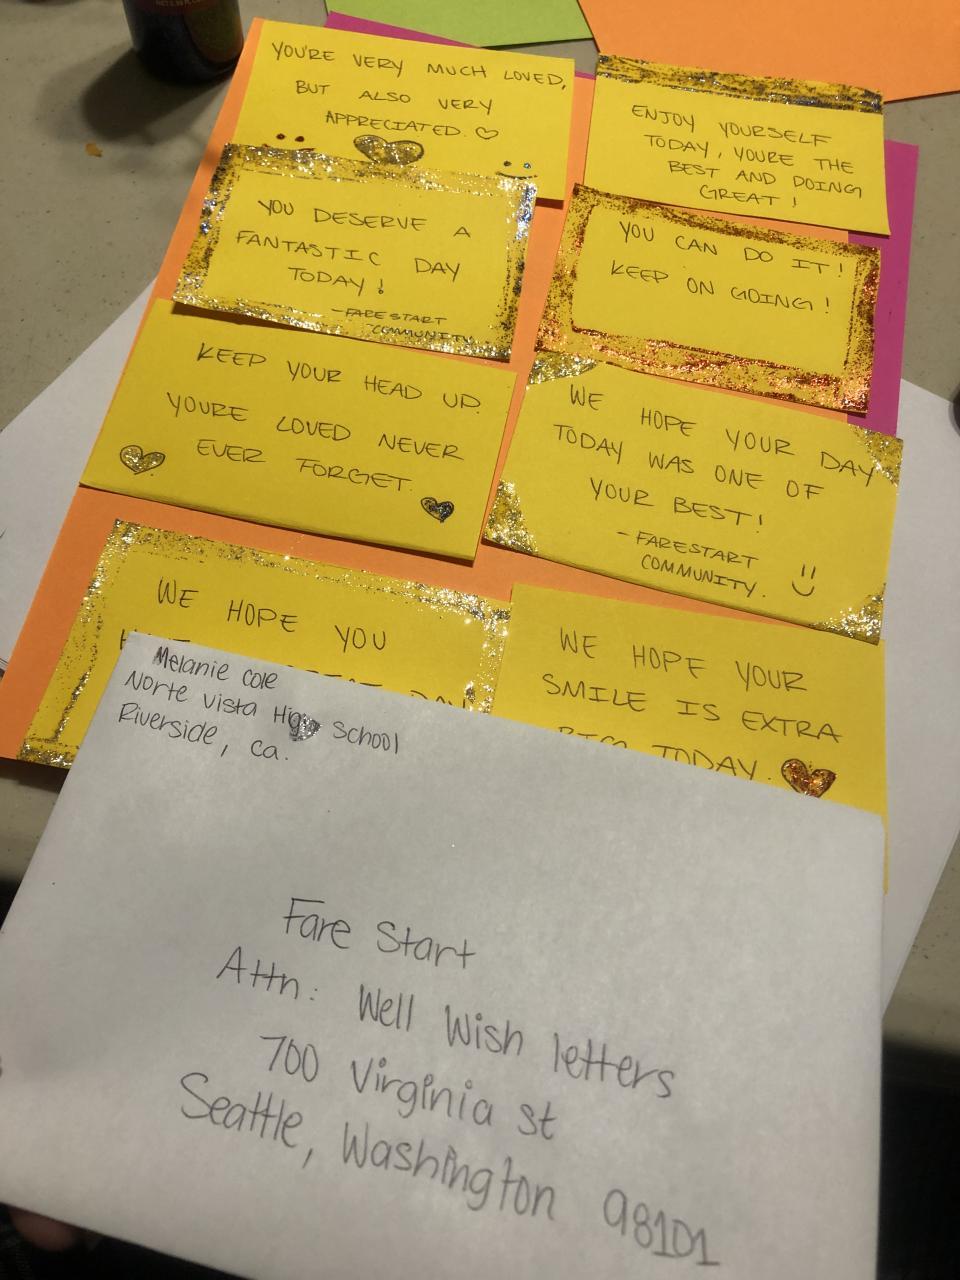 YOU'RE VERY MUCH LOVED,
BUT ALSO VERY
APPRECIATED. ♡
ENJOY YOURSELF
TODAY, YOURE THE
BEST AND DOING
GREAT!
YOU DESERVE A
FANTASTIC DAY
TODAY!
- FARESTART
COMMUNITY
YOU CAN DO IT!
KEEP ON GOING!
KEEP YOUR HEAD UP.
YOURE LOVED NEVER
EVER FORGET.
WE HOPE YOUR DAY
TODAY WAS ONE OF
YOUR BEST!
- FARESTART
COMMUNITY.
WE HOPE YOU
DAY
WE HOPE YOUR
SMILE IS EXTRA
BIG TODAY.
Melanie Cole
Norte Vista High School
Riverside, Ca.
Fare Start
Attn: Well Wish letters
700 Virginia st
Seattle, Washington 98101